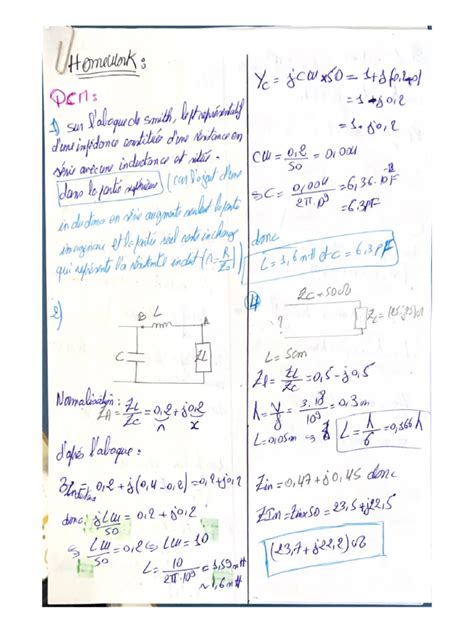 Homework:
QCM:
1) sur l'abaque de smith, le pt représentatif
d'une impédance constituée d'une résistance en
série avec une inductance est située
dans la partie supérieure (car l'ajout d'une
inductance en série augmente seulement la partie
imaginaire et la partie réel reste inchangé
qui représente la résistante
2)
B L A
C ZL
Normalisation: ZA = ZL/ZC = 0,2 + j0,2
r x
d'après l'abaque:
= 0,2 + j(0,4-0,2) = 0,2 + j0,2
donc jLω/50 = 0,2 + j0,2
⇔ Lω/50 = 0,2 ⇔ Lω = 10
L = 10/2π.10⁹ = 1,59nH
≈ 1,6nH
YC = jCω×50 =
= 1 + j0,2
= 1 + j0,2
Cω = 0,2/50 = 0,004
⇒ C = 0,004/2π.10⁹ = 6,36.
= 6,3pF
donc
L = 3,6nH et C = 6,3pF
4)
ZC = 50Ω
?
L = 5cm
Zl = ZL/ZC = 0,5 - j0,5
λ = v/f = 3.10⁸/10⁹ = 0,3m
L = 0,05m ⇒ L = λ/6 = 0,166λ
Zin = 0,47 + j0,45 donc
ZIn = Zin×50 = 23,5 + j22,5
(23,7 + j22,2)Ω